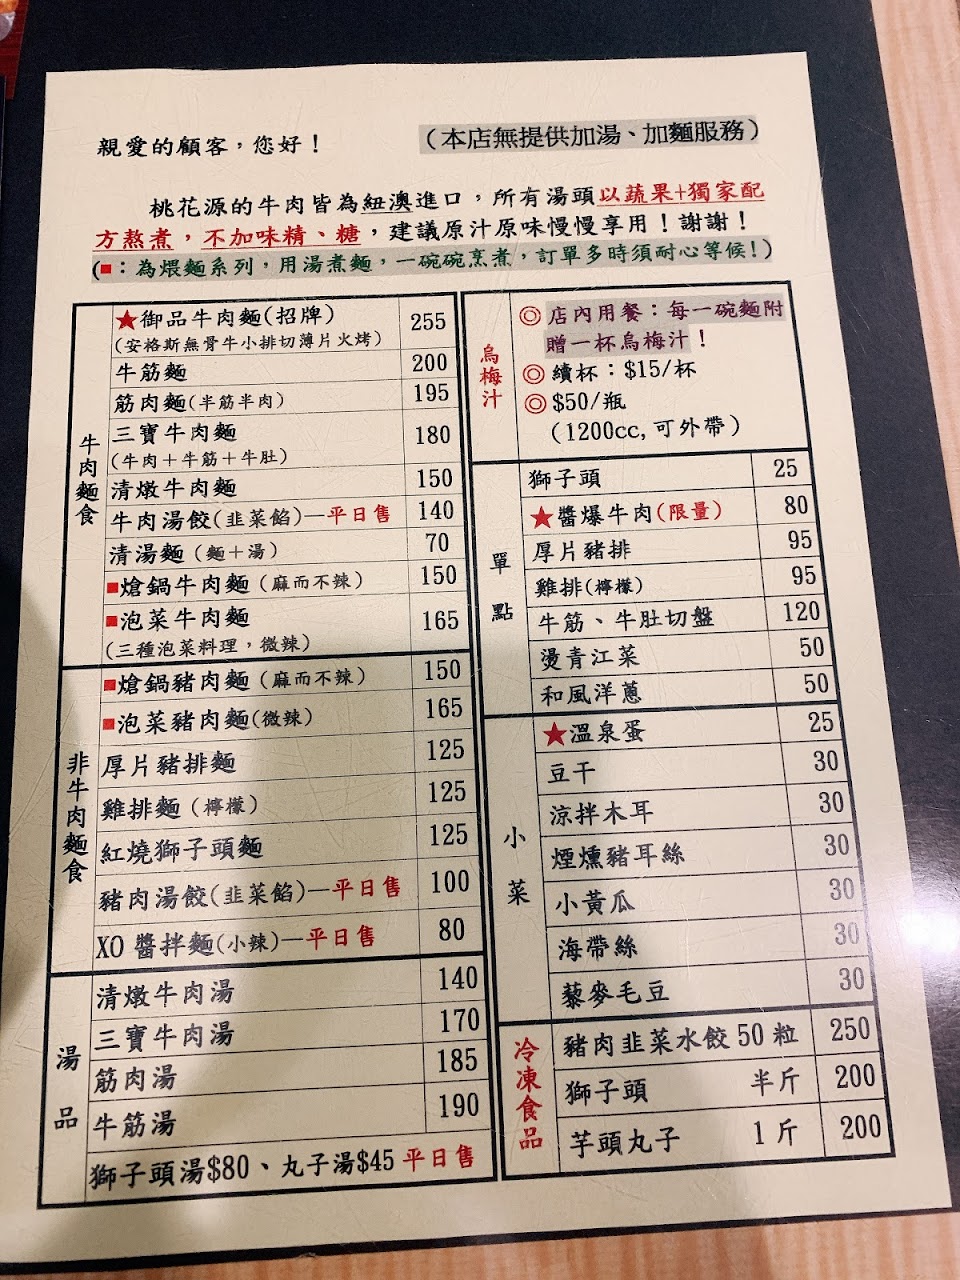 親愛的顧客，您好！
（本店無提供加湯、加麵服務）
桃花源的牛肉皆為紐澳進口，所有湯頭以蔬果+獨家配
方熬煮，不加味精、糖，建議原汁原味慢慢享用！謝謝！
(■：為煨麵系列，用湯煮麵，一碗碗烹煮，訂單多時須耐心等候!)
牛肉麵食
★御品牛肉麵(招牌) 255
(安格斯無骨牛小排切薄片火烤)
牛筋麵 200
筋肉麵(半筋半肉) 195
三寶牛肉麵 180
(牛肉＋牛筋＋牛肚)
清燉牛肉麵 150
牛肉湯餃(韭菜餡)—平日售 140
清湯麵（麵＋湯） 70
■熗鍋牛肉麵（麻而不辣） 150
■泡菜牛肉麵 165
(三種泡菜料理，微辣)
非牛肉麵食
■熗鍋豬肉麵（麻而不辣） 150
■泡菜豬肉麵(微辣) 165
厚片豬排麵 125
雞排麵（檸檬） 125
紅燒獅子頭麵 125
豬肉湯餃(韭菜餡)—平日售 100
XO 醬拌麵(小辣)—平日售 80
湯品
清燉牛肉湯 140
三寶牛肉湯 170
筋肉湯 185
牛筋湯 190
獅子頭湯$80、丸子湯$45 平日售
烏梅汁
◎店內用餐：每一碗麵附
贈一杯烏梅汁！
◎續杯：$15/杯
◎$50/瓶
（1200cc,可外帶）
單點
獅子頭 25
★醬爆牛肉(限量) 80
厚片豬排 95
雞排(檸檬) 95
牛筋、牛肚切盤 120
燙青江菜 50
和風洋蔥 50
小菜
★溫泉蛋 25
豆干 30
涼拌木耳 30
煙燻豬耳絲 30
小黃瓜 30
海帶絲 30
藜麥毛豆 30
冷凍食品
豬肉韭菜水餃 50 粒 250
獅子頭 半斤 200
芋頭丸子 1 斤 200